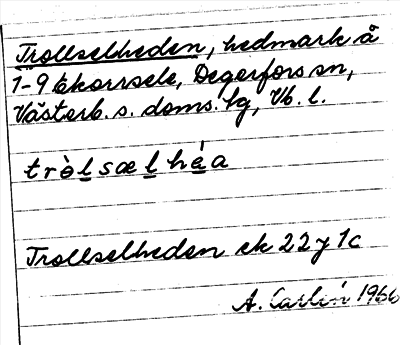 Trollselheden, hedmark å
1-9 Ekorrsele, Degerfors sn,
Västerb. s. doms. lg, Vb. l.
tròl̲sæl̲hé̲a
Trollselheden ek 22 y 1c
A. Carlén 1966